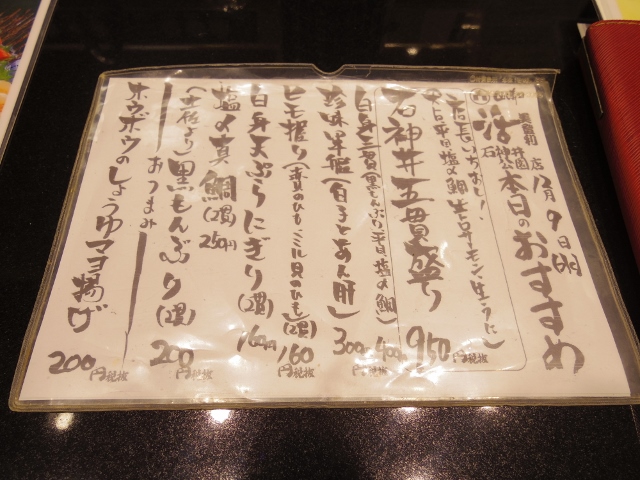 活 石神井公園店
12月9日
本日のおすすめ
店長いちおし!
石神井五貫盛り 950円税抜
白身三貫(黒もんぶり 平目 塩〆鯛) 400円税抜
珍味軍艦(白子とあん肝) 300円税抜
ヒモ握り(赤貝のひも、ミル貝のひも)(2貫) 160円税抜
白身天ぷらにぎり(2貫) 160円
塩〆真鯛(2貫) 250円
黒もんぶり(2貫) 200円税抜
おつまみ
ホウボウのしょうゆマヨ揚げ 200円税抜